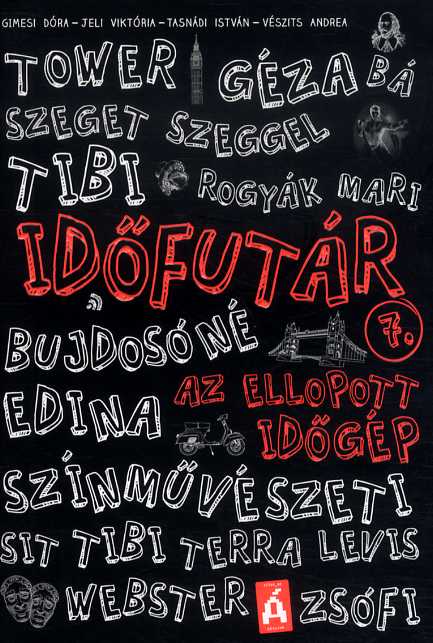 GIMESI DÓRA – JELI VIKTÓRIA – TASNÁDI ISTVÁN – VÉSZITS ANDREA
TOWER GÉZA BÁ
SZEGET SZEGGEL
TIBI ROGYÁK MARI
IDŐFUTÁR
7.
BUJDOSÓNÉ
EDINA
AZ ELLOPOTT
IDŐGÉP
SZÍNMŰVÉSZETI
SIT TIBI TERRA LEVIS
WEBSTER Á ZSÓFI